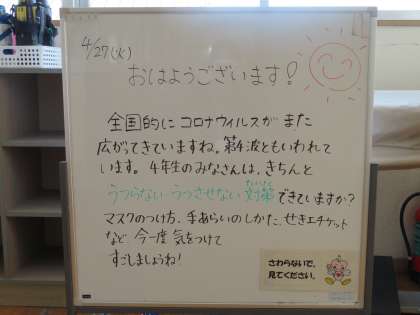 4/27(火)
おはようございます!
全国的に コロナウイルスが また
広がってきていますね。第4波ともいわれて
います。4年生のみなさんは、きちんと
うつらない うつさせない 対策 できていますか?
たいさく
マスクのつけ方、手あらいのしかた、せきエチケット
など、今一度 気をつけて
すごしましょうね!
さわらないで、
見てください。